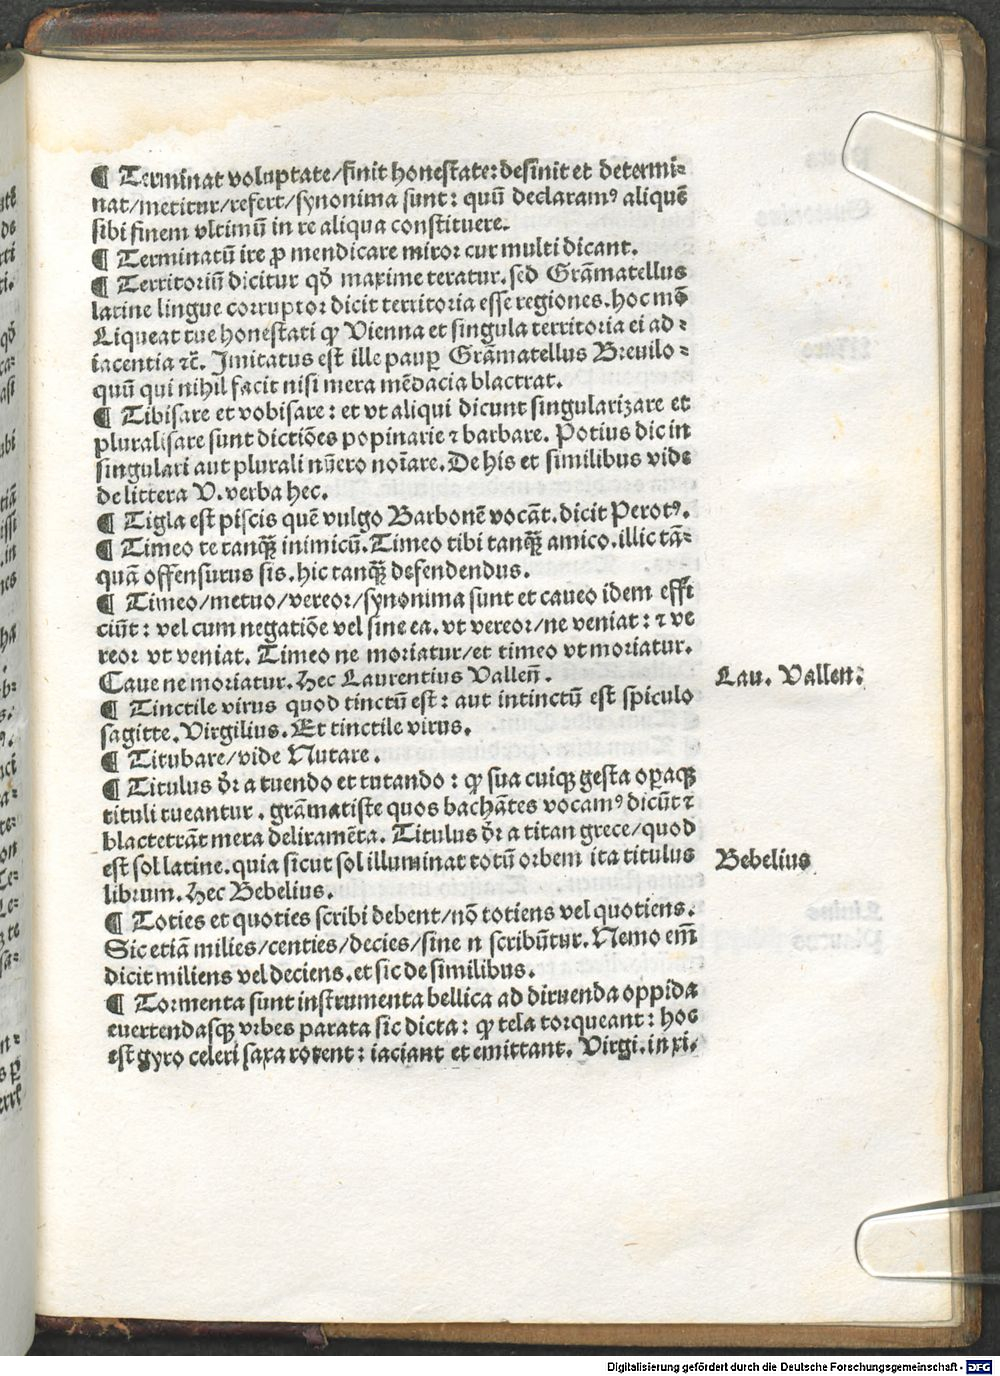 ¶ Terminat voluptate/finit honestate: desinit et determi⸗
nat/metitur/refert/synonima sunt: quū declaramꝰ aliquē
sibi finem vltimū in re aliqua constituere.
¶ Terminatū ire ꝓ mendicare miror cur multi dicant.
¶ Territoriū dicitur qđ maxime teratur. sed Grāmatellus
latine lingue corruptor dicit territoria esse regiones. hoc mō
Liqueat tue honestati ꝙ Vienna et singula territoria ei ad⸗
iacentia ⁊c̄. Imitatus est ille pauꝑ Grāmatellus Breuilo⸗
quū qui nihil facit nisi mera mēdacia blactrat.
¶ Tibisare et vobisare: et vt aliqui dicunt singularizare et
pluralisare sunt dictiōes popinarie ⁊ barbare. Potius dic in
singulari aut plurali nūero noīare. De his et similibus vide
de littera V. verba hec.
¶ Tigla est piscis quē vulgo Barbonē vocāt. dicit Perotꝰ.
¶ Timeo te tanꝗ̄ inimicū. Timeo tibi tanꝗ̄ amico. illic tā⸗
quā offensurus sis. hic tanꝗ̄ defendendus.
¶ Timeo/metuo/vereor/synonima sunt et caueo idem effi
ciūt: vel cum negatiōe vel sine ea. vt vereor/ne veniat: ⁊ ve
reor vt veniat. Timeo ne moriatur/et timeo vt moriatur.
Caue ne moriatur. Hec Laurentius Valleñ.
¶ Tinctile virus quod tinctū est: aut intinctū est spiculo
sagitte. Virgilius. Et tinctile virus.
¶ Titubare/vide Nutare.
¶ Titulus dr̄: a tuendo et tutando: ꝙ sua cuiqꝫ gesta oꝑaqꝫ
tituli tueantur. grāmatiste quos bachātes vocamꝰ dicūt ⁊
blactetrāt mera deliramēta. Titulus dr̄ a titan grece/quod
est sol latine. quia sicut sol illuminat totū orbem ita titulus
librum. Hec Bebelius.
¶ Toties et quoties scribi debent/nō totiens vel quotiens.
Sic etiā milies/centies/decies/sine n scribūtur. Nemo em̄
dicit miliens vel deciens. et sic de similibus.
¶ Tormenta sunt instrumenta bellica ad diruenda oppida
euertendasqꝫ vrbes parata sic dicta: ꝙ tela torqueant: hoc
est gyro celeri saxa rotent: iaciant et emittant. Virgi. in xi.
Lau. Vallen:
Bebelius
Digitalisierung gefördert durch die Deutsche Forschungsgemeinschaft - DFG